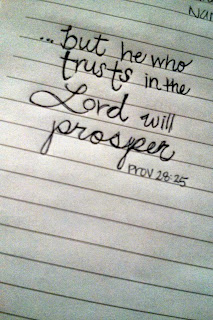 ...but he who
trusts in the
Lord will
prosper
Prov 28:25